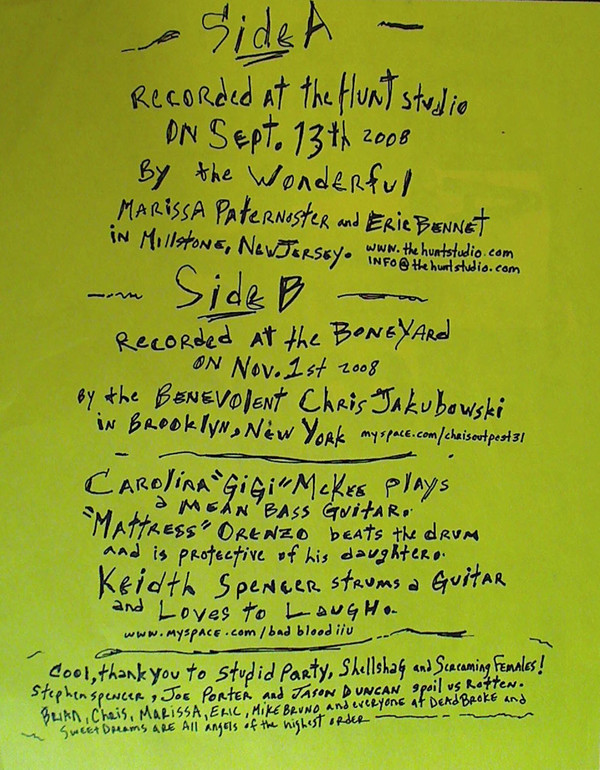 Side A
Recorded at the Hunt Studio
on Sept. 13th 2008
By the Wonderful
Marissa Paternoster and Eric Bennet
in Millstone, New Jersey. www.thehuntstudio.com
info@thehuntstudio.com
Side B
Recorded at the Boneyard
on Nov. 1st 2008
by the Benevolent Chris Jakubowski
in Brooklyn, New York myspace.com/chrisoutpost31
Carolina "Gigi" McKee plays
a mean bass guitar.
"Mattress" Orenzo beats the drum
and is protective of his daughtero.
Keidth Spencer strums a guitar
and Loves to Laugh.
www.myspace.com/badbloodiiu
Cool, thank you to Studid Party, Shellshag and Screaming Females!
Stephen spencer, Joe Porter and Jason Duncan spoil us rotten.
Brian, Chris, Marissa, Eric, Mike Bruno and everyone at Dead Broke and
Sweet Dreams are all angels of the highest order